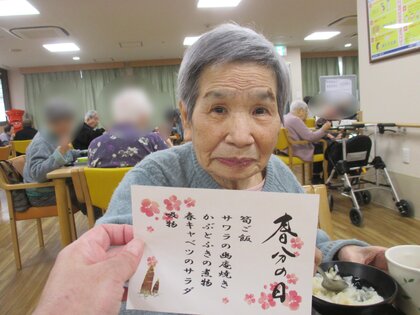 春分の日
筍ご飯
サワラの幽庵焼き
かぶとふきの煮物
春キャベツのサラダ
煮物